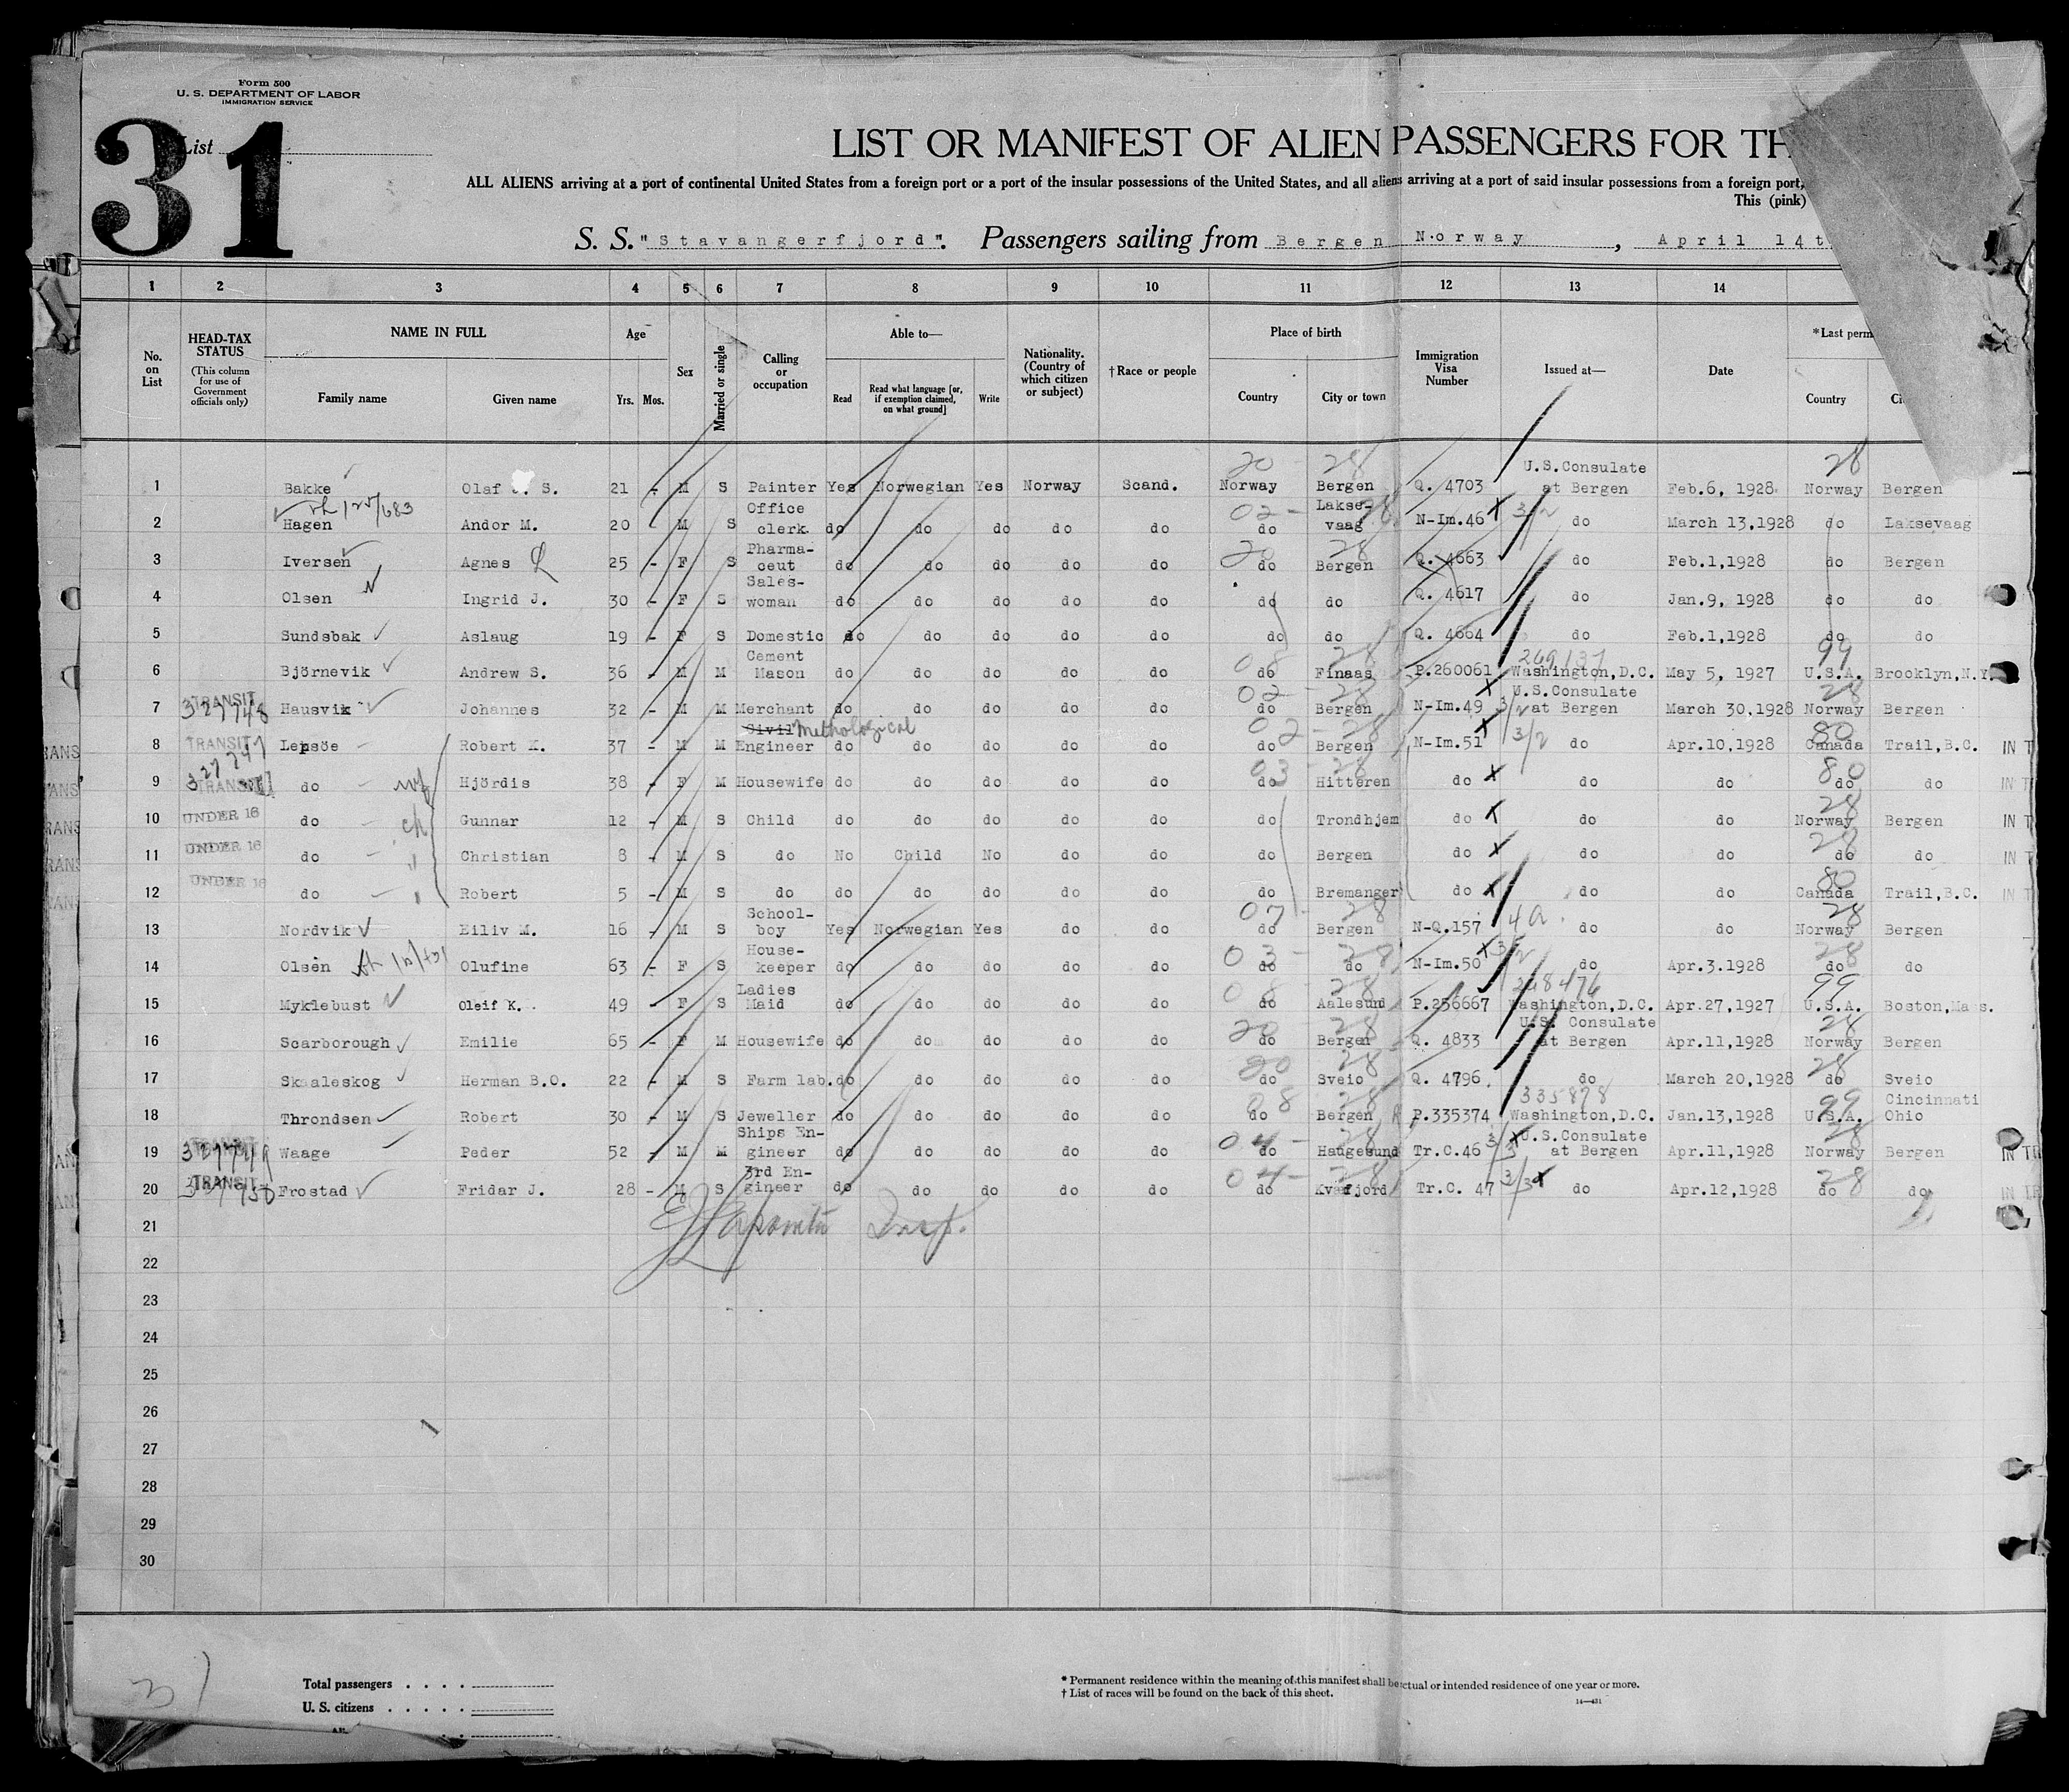 Form 500
U. S. DEPARTMENT OF LABOR
IMMIGRATION SERVICE
31
List
LIST OR MANIFEST OF ALIEN PASSENGERS FOR TH
ALL ALIENS arriving at a port of continental United States from a foreign port or a port of the insular possessions of the United States, and all aliens arriving at a port of said insular possessions from a foreign port,
This (pink)
S. S. "Stavangerfjord". Passengers sailing from Bergen Norway, April 14t
1 2 3 4 5 6 7 8 9 10 11 12 13 14
No. on List
HEAD-TAX STATUS (This column for use of Government officials only)
NAME IN FULL
Family name Given name
Age Yrs. Mos.
Sex
Married or single
Calling or occupation
Able to—
Read Read what language [or, if exemption claimed, on what ground] Write
Nationality. (Country of which citizen or subject)
† Race or people
Place of birth
Country City or town
Immigration Visa Number
Issued at—
Date
* Last perm
Country
1 Bakke Olaf S. 21 - M S Painter Yes Norwegian Yes Norway Scand. 20 - 28 Norway Bergen Q. 4703 U.S.Consulate at Bergen Feb.6, 1928 28 Norway Bergen
2 Hagen Andor M. 20 M S Office clerk do do do do do 02 - 28 do Laksevaag N-Im.46 X 3/2 do March 13,1928 do Laksevaag
3 Iversen Agnes 25 - F S Pharmaceut do do do do do 20 28 do Bergen Q. 4663 do Feb.1,1928 do Bergen
4 Olsen Ingrid J. 30 - F S Saleswoman do do do do do do do Q. 4617 do Jan.9, 1928 do do
5 Sundsbak Aslaug 19 - F S Domestic do do do do do do do Q. 4664 do Feb.1,1928 do do
6 Björnevik Andrew S. 36 - M M Cement Mason do do do do do 08 28 do Finaas P.260061 269137 Washington,D.C. May 5, 1927 99 U.S.A. Brooklyn,N.Y.
7 TRANSIT 327748 Hausvik Johannes 32 - M M Merchant do do do do do 02 - 28 do Bergen N-Im.49 X 3/2 U.S.Consulate at Bergen March 30,1928 28 Norway Bergen
8 TRANSIT 327747 Lepsöe Robert K. 37 - M M Civil Engineer do do do do do 02 - 28 do Bergen N-Im.51 X 3/2 do Apr.10,1928 80 Canada Trail,B.C. IN T
9 TRANSIT do wf Hjördis 38 - F M Housewife do do do do do 03 - 28 do Hitteren do X do do 80 do do IN T
10 UNDER 16 do ch Gunnar 12 - M S Child do do do do do do Trondhjem do X do do 28 Norway Bergen IN T
11 UNDER 16 do " Christian 8 - M S do No Child No do do do Bergen do X do do 28 do do IN T
12 UNDER 16 do " Robert 5 - M S do do do do do do do Bremanger do X do do 80 Canada Trail,B.C. IN T
13 Nordvik Eiliv M. 16 - M S Schoolboy Yes Norwegian Yes do do 07 - 28 do Bergen N-Q.157 4a do do 28 Norway Bergen
14 Olsen Olufine 63 - F S Housekeeper do do do do do 03 - 28 do do N-Im.50 X 3/2 do Apr.3.1928 28 do do
15 Myklebust Oleif K. 49 - F S Ladies Maid do do do do do 08 - 28 do Aalesund P.256667 Washington,D.C. Apr.27,1927 99 U.S.A. Boston,Mass.
16 Scarborough Emilie 65 - F M Housewife do do do do do 20 28 do Bergen Q. 4833 U.S. Consulate at Bergen Apr.11,1928 28 Norway Bergen
17 Skaaleskog Herman B.O. 22 - M S Farm lab. do do do do do 20 28 do Sveio Q. 4796 do March 20,1928 28 do Sveio
18 Throndsen Robert 30 - M S Jeweller do do do do do 08 28 do Bergen P.335374 335878 Washington,D.C. Jan.13,1928 99 U.S.A. Cincinnati Ohio
19 TRANSIT 327749 Waage Peder 52 - M M Ships Engineer do do do do do 04 - 28 do Haugesund Tr.C.46 3/3 X U.S.Consulate at Bergen Apr.11,1928 28 Norway Bergen
20 TRANSIT Frostad Fridar J. 28 - M S 3rd Engineer do do do do do 04 - 28 do Kvæfjord Tr.C. 47 3/3 X do Apr.12,1928 28 do do
21 Insp.
22
23
24
25
26
27
28
29
30
31
Total passengers
U. S. citizens
* Permanent residence within the meaning of this manifest shall be actual or intended residence of one year or more.
† List of races will be found on the back of this sheet.
14—431